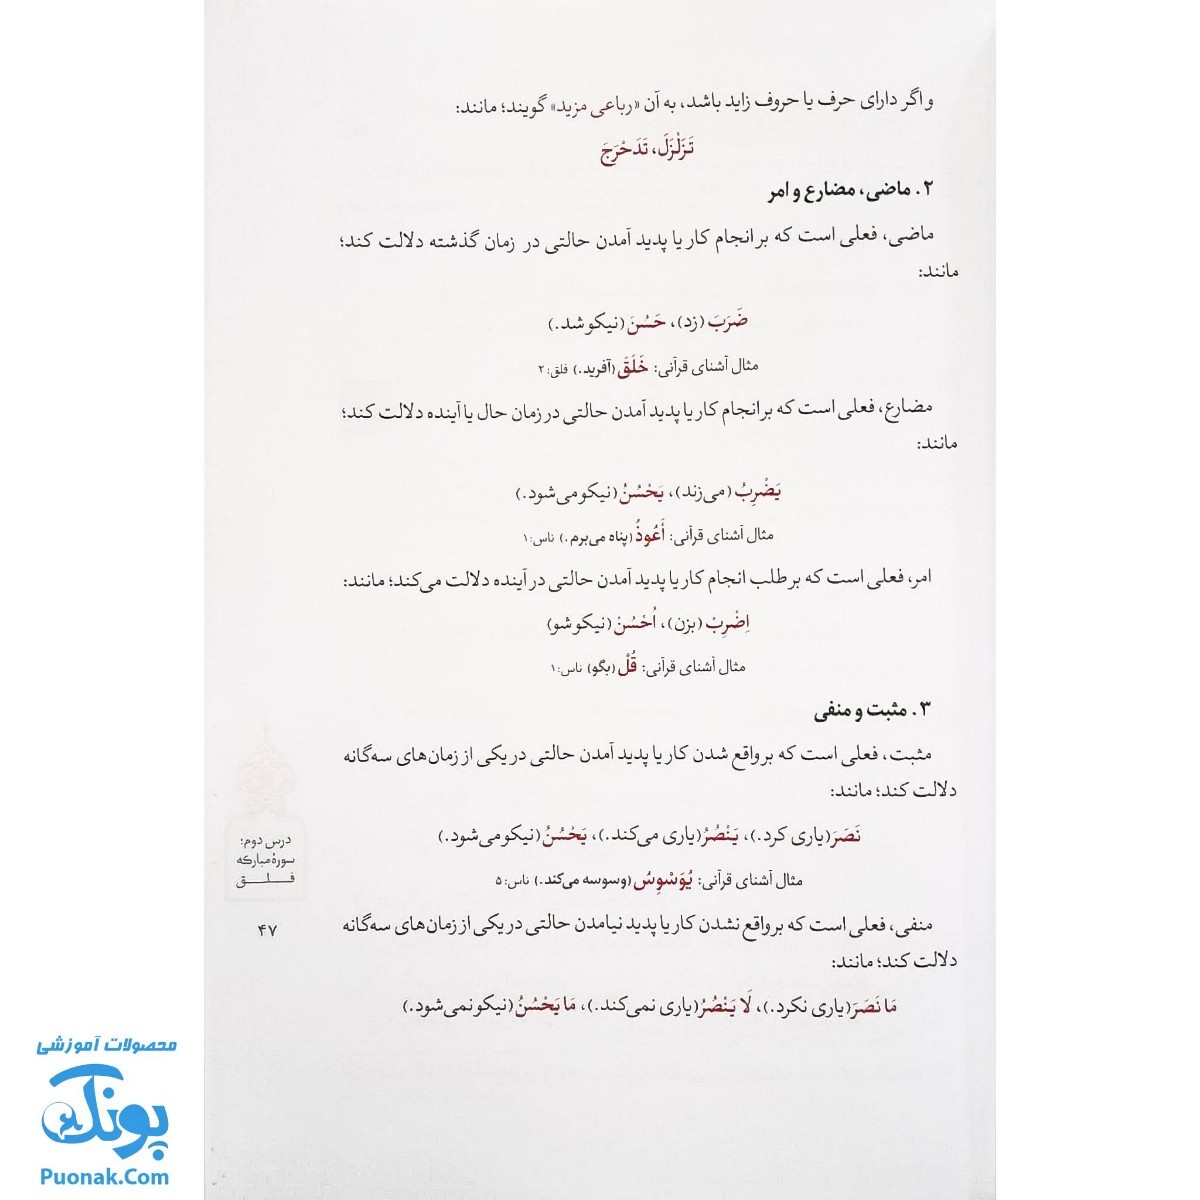 و اگر دارای حرف یا حروف زاید باشد، به آن «رباعی مزید» گویند؛ مانند:
تَزَلْزَلَ، تَدَحْرَجَ
۲. ماضی، مضارع و امر
ماضی، فعلی است که بر انجام کار یا پدید آمدن حالتی در زمان گذشته دلالت کند؛
مانند:
ضَرَبَ (زد)، حَسُنَ (نیکو شد.)
مثال آشنای قرآنی: خَلَقَ (آفرید.) فلق: ۲
مضارع، فعلی است که بر انجام کار یا پدید آمدن حالتی در زمان حال یا آینده دلالت کند؛
مانند:
یَضْرِبُ (می‌زند)، یَحْسُنُ (نیکو می‌شود.)
مثال آشنای قرآنی: أَعُوذُ (پناه می‌برم.) ناس: ۱
امر، فعلی است که بر طلب انجام کار یا پدید آمدن حالتی در آینده دلالت می‌کند؛ مانند:
اِضْرِبْ (بزن)، اُحْسُنْ (نیکو شو)
مثال آشنای قرآنی: قُلْ (بگو) ناس: ۱
۳. مثبت و منفی
مثبت، فعلی است که بر واقع شدن کار یا پدید آمدن حالتی در یکی از زمان‌های سه‌گانه
دلالت کند؛ مانند:
نَصَرَ (یاری کرد.)، یَنْصُرُ (یاری می‌کند.)، یَحْسُنُ (نیکو می‌شود.)
مثال آشنای قرآنی: یُوَسْوِسُ (وسوسه می‌کند.) ناس: ۵
منفی، فعلی است که بر واقع نشدن کار یا پدید نیامدن حالتی در یکی از زمان‌های سه‌گانه
دلالت کند؛ مانند:
مَا نَصَرَ (یاری نکرد.)، لَا یَنْصُرُ (یاری نمی‌کند.)، مَا یَحْسُنُ (نیکو نمی‌شود.)
درس دوم:
سورهٔ مبارکه
فلق
۴۷
محصولات آموزشی
پونک
Puonak.Com